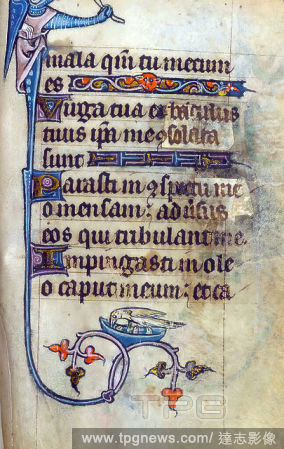 mala qm tu mecum
es
Virga tua et baculus
tuus ipa me 9solata
sunt
Parasti in 9spectu me
o mensam: adusus
eos qui tribulant me
Impingasti in ole
o caput meum: et ca
TPG
www.tpgnews.com/達志影像